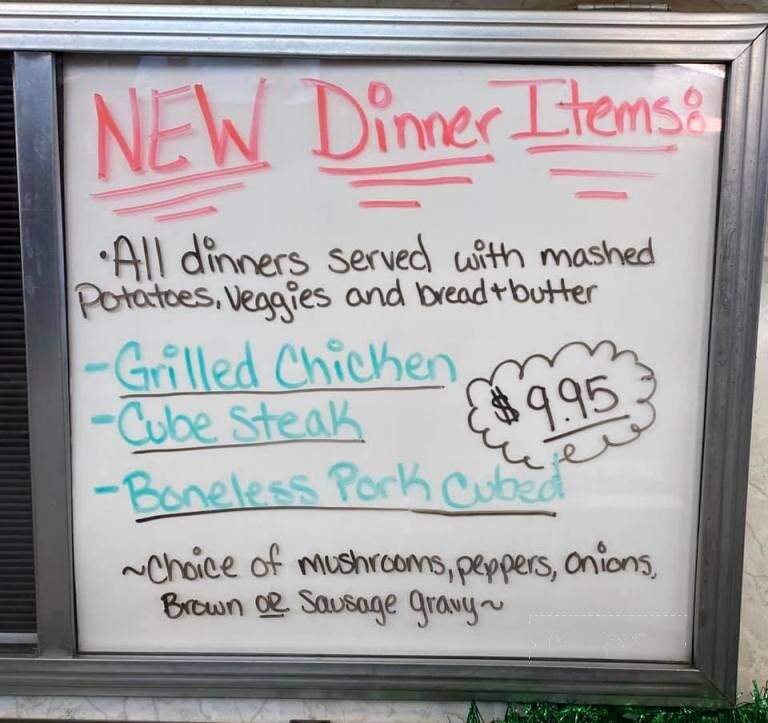 NEW Dinner Items:
•All dinners served with mashed
Potatoes, Veggies and bread+butter
-Grilled Chicken
$9.95
-Cube Steak
-Boneless Pork Cubed
~Choice of mushrooms, peppers, onions,
Brown or Sausage gravy~